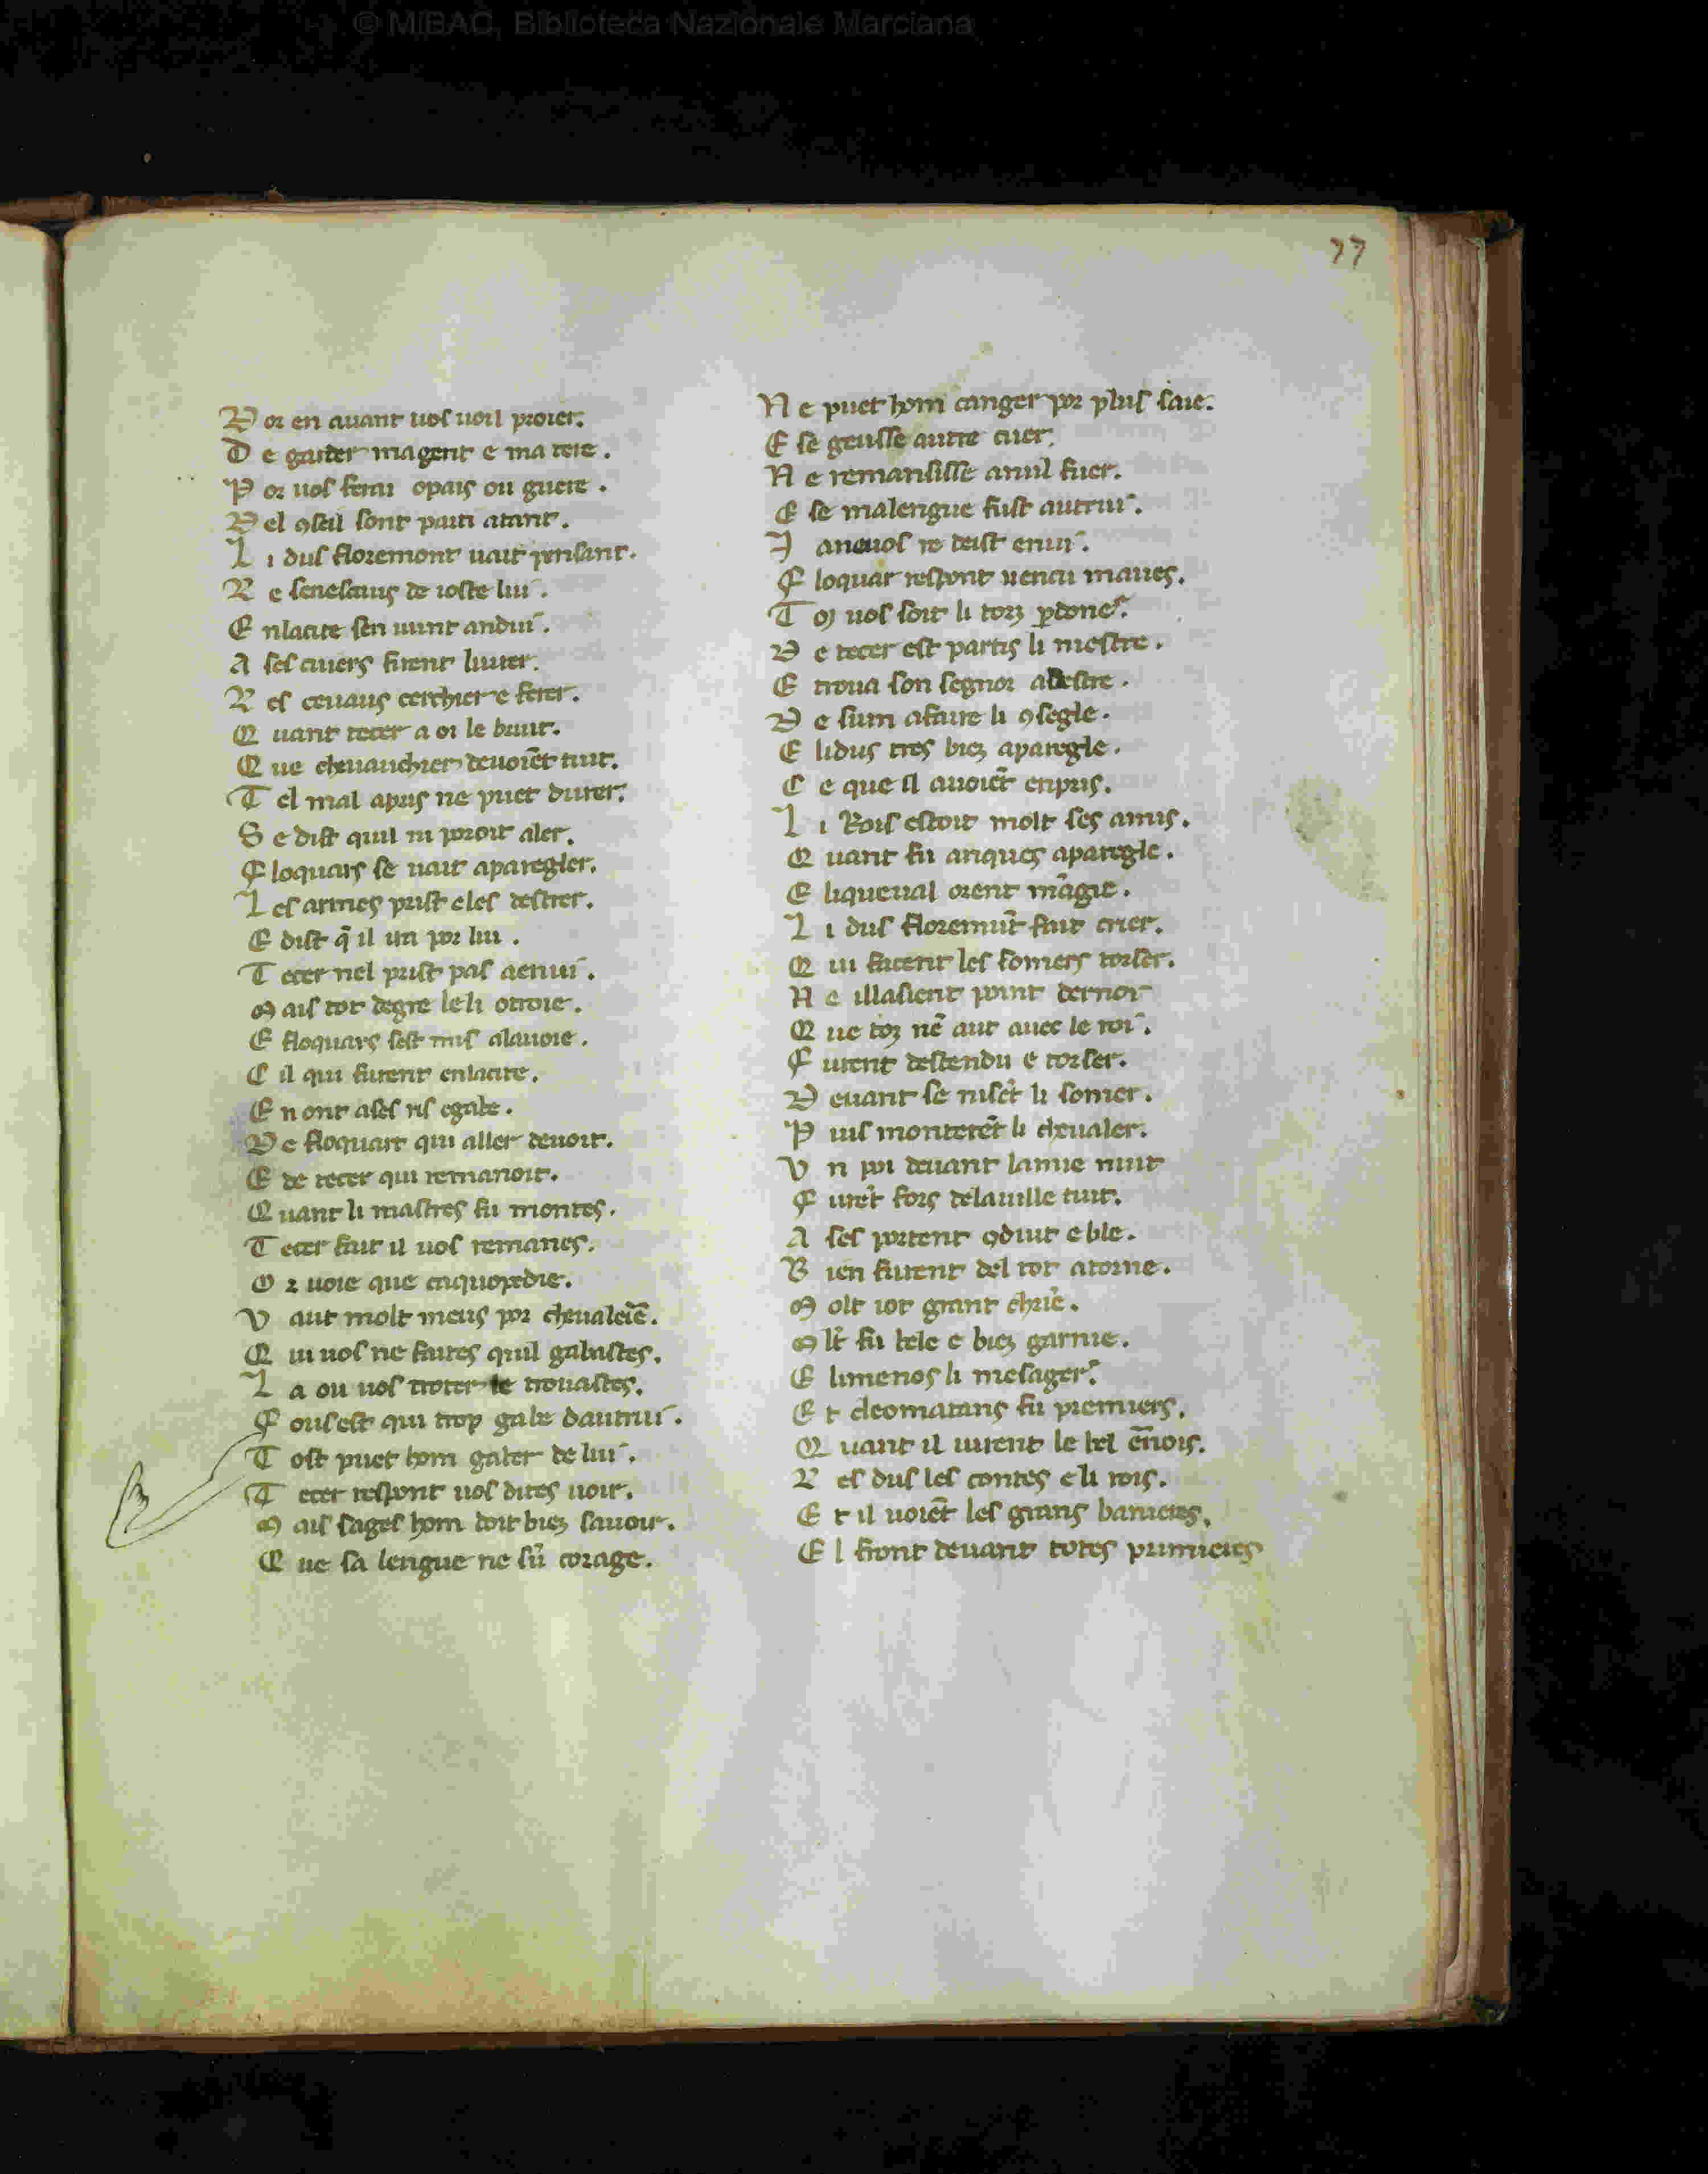 © MiBAC, Biblioteca Nazionale Marciana
77
D or en auant uos uoil proier.
D e garder ma gent e ma tere.
P or uos ferai o pais ou guere.
D el 9seil sont parti atant.
L i dus floremont uait pensant.
L e senescaus de ioste lui.
E n la cite sen uunt andui.
A ses cuers firent liurer.
L es ceuaus cerchier e ferer.
Q uant tecer a oi le bruit.
Q ue cheuauchier deuoiēt tuit.
T el mal a pris ne puet durer.
S e dist quil ni poroit aler.
F loquars se uait aparegler.
L es armes prist e les destrer.
E dist q̄ il ira por lui.
T ecer nel prist pas a enui.
M ais tot de gre le li otroie.
E floquars sest mis a la uoie.
C il qui furent en la cite.
E n ont ases ris e gabe.
D e floquart qui aller deuoit.
E de tecer qui remanoit.
Q uant li mastres fu montes.
T ecer fait il uos remanes.
O r uoie que enquopedie.
V aut molt meus por cheualeiē.
Q ui uos ne faites quil gabastes.
L a ou uos troter le trouastes.
F ous est qui trop gabe dautrui.
T ost puet hom gaber de lui.
T ecer respont uos dites uoir.
M ais sages hom doit biez sauoir.
Q ue sa lengue ne sū corage.
N e puet hom canger por plus saie.
E se geusse autre cuer.
N e remansisse a nuil fuer.
E se ma lengue fust autrui.
J a ne uos re deist enui.
F loquar respont uencu maues.
T oz uos soit li torz ꝑdones.
D e tecer est partis li mestre.
E troua son segnor a destre.
D e sum afaire li 9segle.
E li dus tres biez aparegle.
C e que il auoiēt enpris.
L i Rois estoit molt ses amis.
Q uant fu anques aparegle.
E li queual orent māgie.
L i dus floremūt fait crier.
Q ui facent les somers torser.
N e il lasient point dernoi
Q ue toz nē aut auec le roi.
F urent destendu e torser.
D euant se misēt li somer.
P uis monterēt li cheualer.
V n poi deuant la mie nuit
F urēt fors de la uille tuit.
A ses portent 9duit e ble.
B ien furent del tot atorne.
M olt iot grant chrie.
M lt fu bele e biez garnie.
E li menos li mesager.
E t cleomatans fu premiers.
Q uant il uirent le bel ērnois.
L es dus les contes e li rois.
E t il uoiēt les grans banieres.
E l front deuant totes primieres